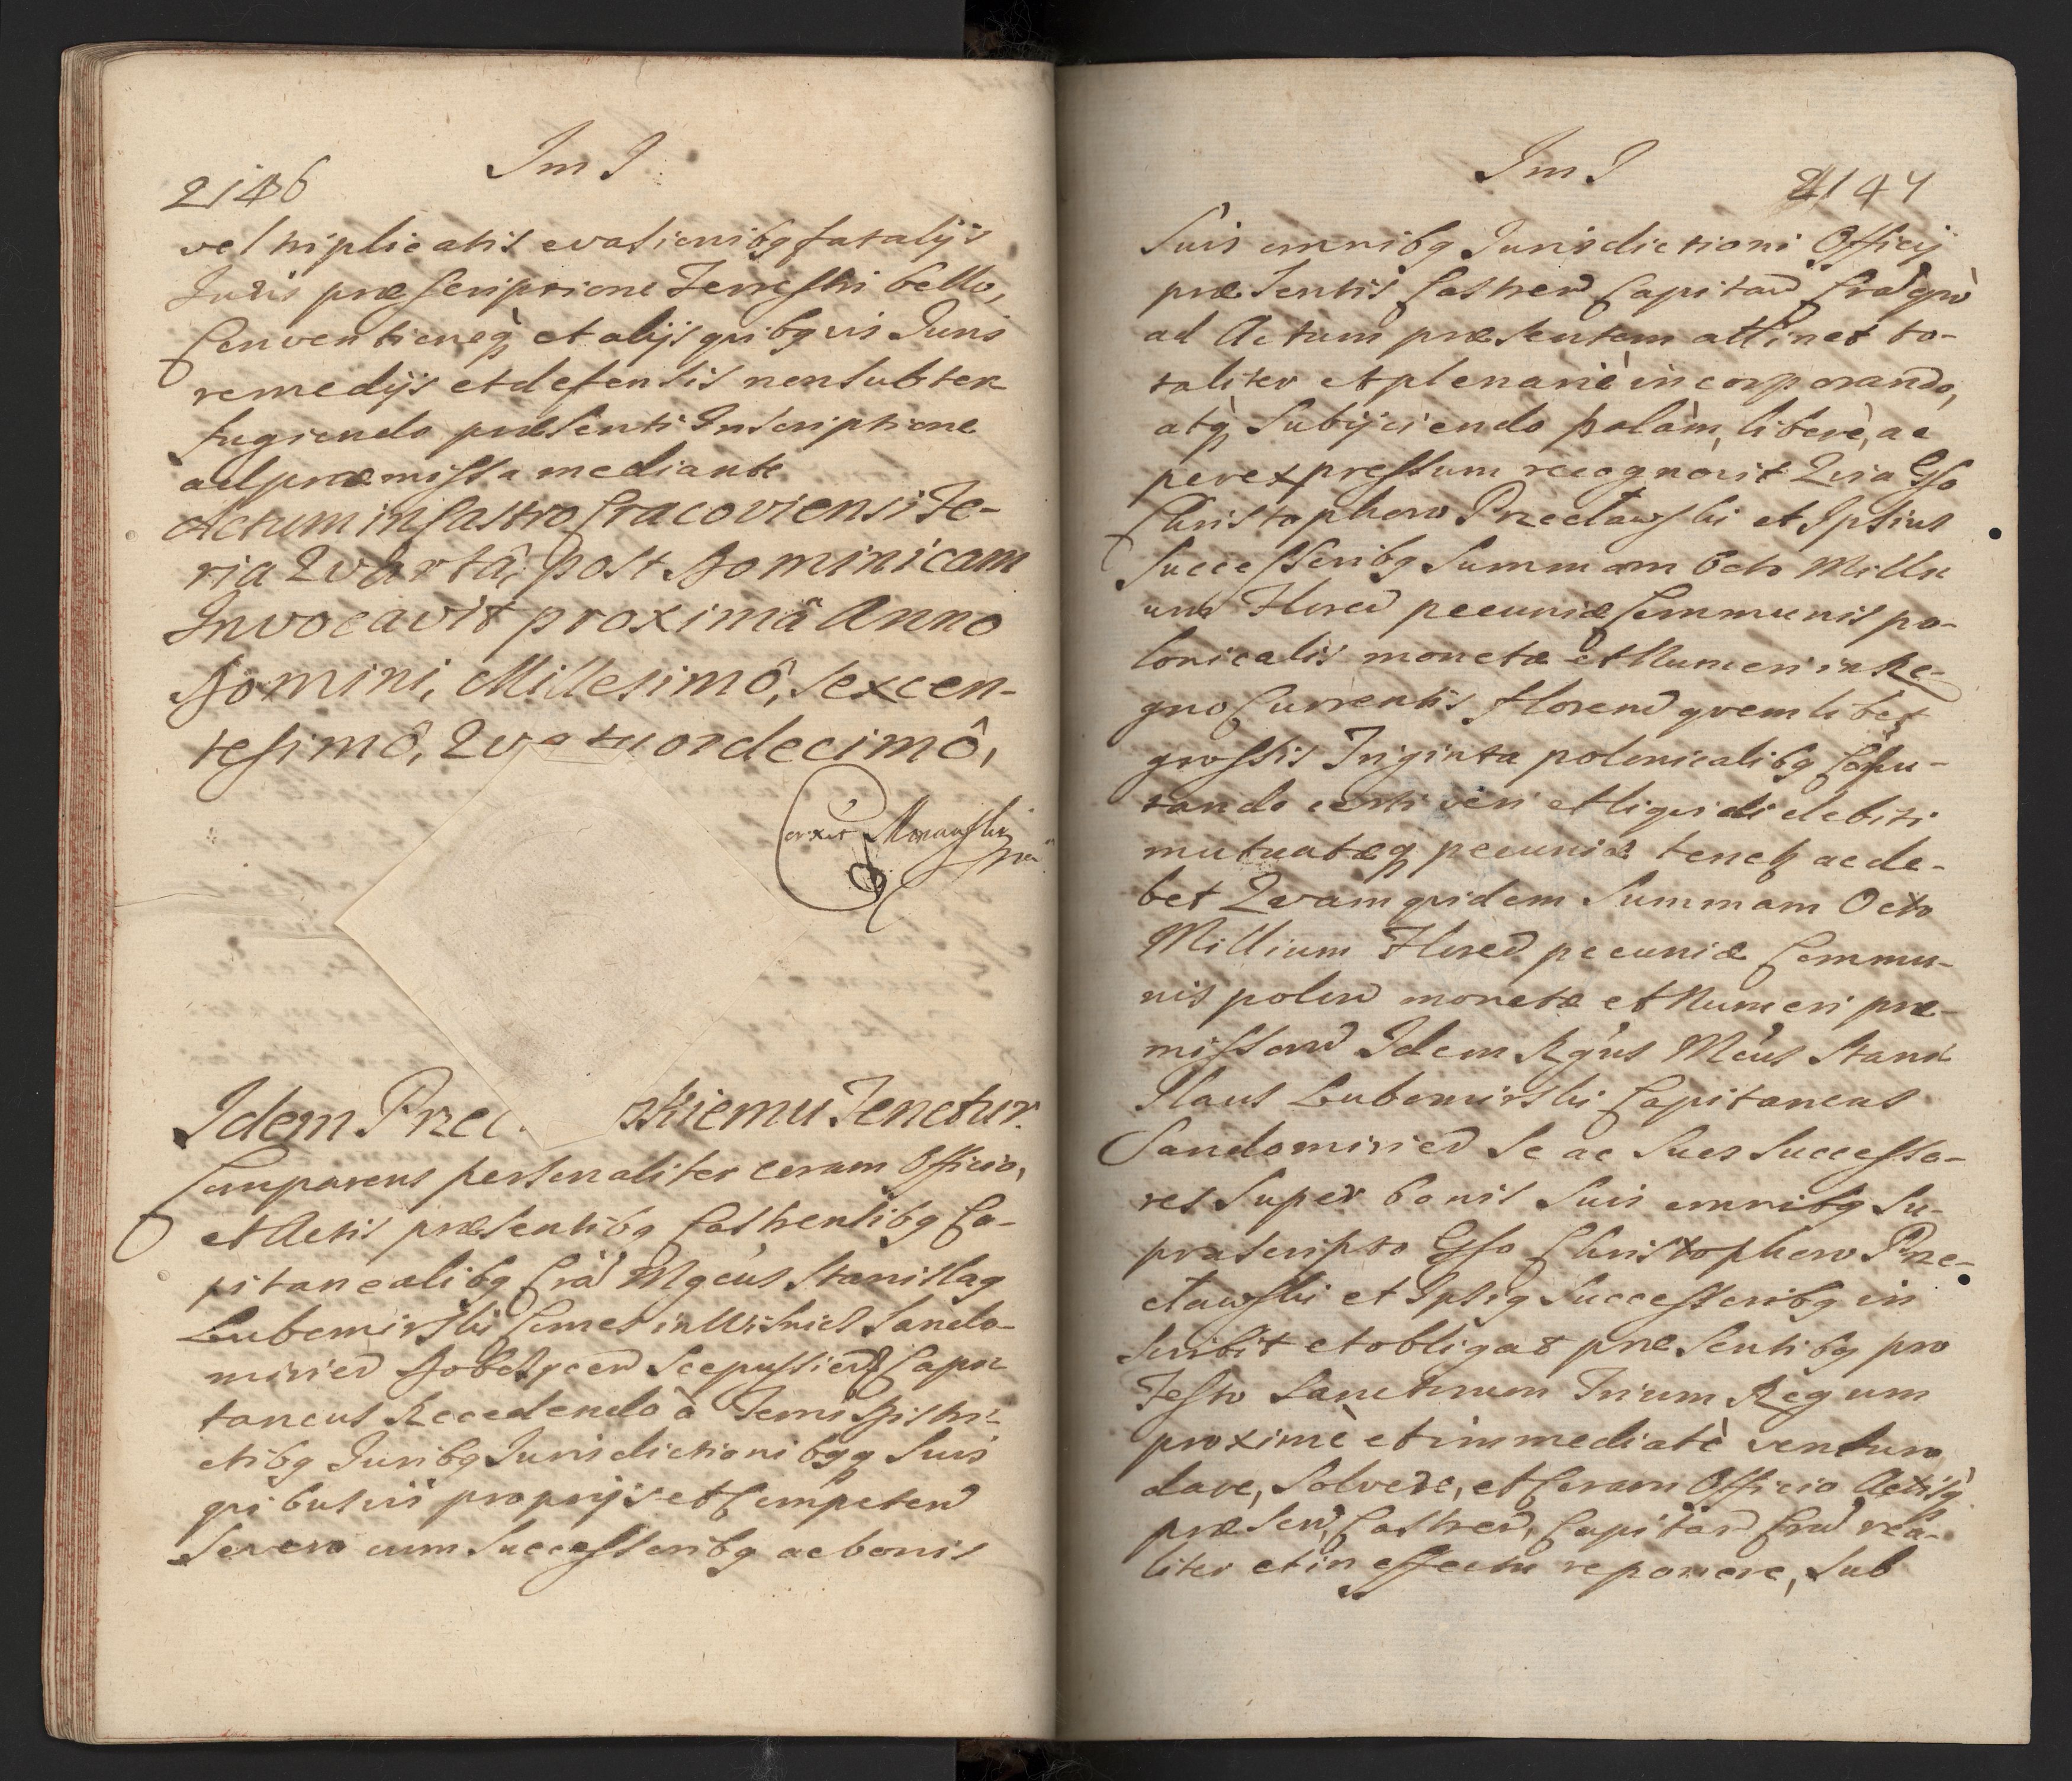 Im I
2146
vel triplicatis evasionibq fatalijs
Juris præscriptione Terrestri bello,
Conventioneq et alijs quibqvis Juris
remedijs et defensis non subter
fugiendo præsenti Inscriptione
ad præmissa mediante
Actum in Castro Cracoviensi Fe-
ria Qvartâ, post Dominicam
Invocavit proximâ Anno
Domini, Millesimô, Sexcen-
tesimô, Qvatuordecimô,
Idem Przec skiemu Tenetur.
Comparens personaliter coram Officio,
et Actis præsentibq Castrensibq Ca-
pitanealibq Crac Mgcus Stanislaq
Lubomirski Comes in Wisnicz Sando-
mirien Dobczycen Scepusien Capi
taneus Recedendo à Terris Distri-
ctibq Juribq Jurisdictionibqq suis
qvibusvis proprijs et Competen
Se vero cum Successoribq ac bonis
Im I
2147
Suis omnibq Jurisdictioni Officij
præsentis Castren Capitan Crac qvò
ad Actum præsentem attinet to-
taliter et plenariè incorporando,
atq subijciendo palàm, liberè, ac
per expressum recognovit Qvia Gso
Christophoro Przecławski et Ipsius
Successoribq Summam Octo Milli
um Floren pecuniæ Communis po-
lonicalis monetæ et Numeri in Re-
gno Currentis floren qvemlibet
grossis Triginta polonicalibq Compu-
tando certi veri et liqvidi debiti
mutuatæq pecuniæ tenetq ac de-
bet Qvam qvidem Summam Octo
Millium Floren pecuniæ Commu-
nis polon monetæ et Numeri præ-
missorum Idem Rgnus Mcus Stani
slaus Lubomirski Capitaneus
Sandomirien Se ac Suos Successo-
res super bonis suis omnibq Su-
prascripto Gso Christophoro Prze-
cławski et Ipsiq Successoribq in
scribit et obligat præsentibq pro
Festo Sanctorum Trium Regum
proximè et immediatè venturo
dare, Solvere, et Coram Officio Actisq
præsen Castren, Capitan Crac rea-
liter et in effectu reponere, Sub